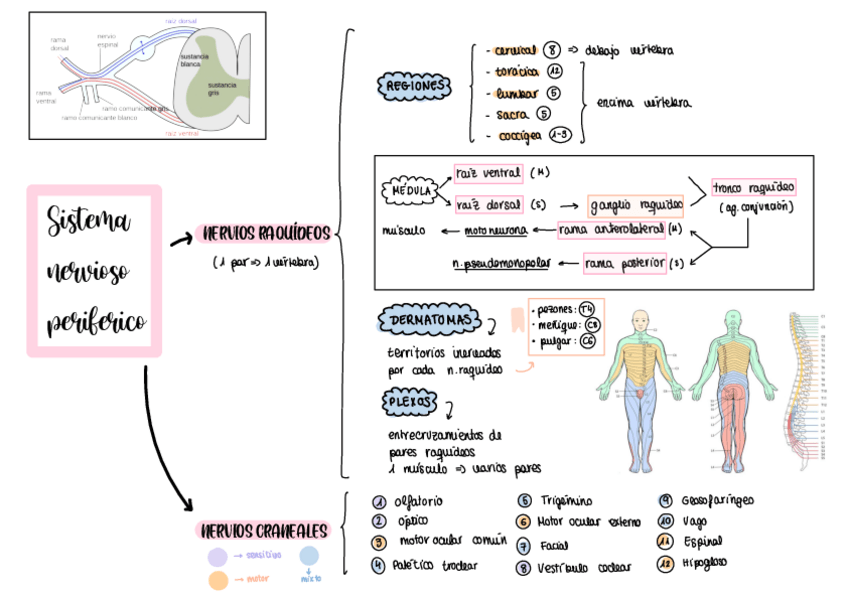 raíz dorsal
rama
dorsal
nervio
espinal
sustancia
blanca
sustancia
gris
rama
ventral
ramo comunicante gris
ramo comunicante blanco
raíz ventral
Sistema
nervioso
periferico
NERVIOS RAQUÍDEOS
(1 par => 1 vértebra)
REGIONES
- cervical 8 => debajo vértebra
- torácica 12
- lumbar 5
- sacra 5
- coccígea 1-3
encima vértebra
MÉDULA
raíz ventral (M)
raíz dorsal (S) → ganglio raquídeo
tronco raquídeo
(ag. conjunción)
músculo ← motoneurona ← rama anterolateral (M)
n. pseudomonopolar ← rama posterior (S)
DERMATOMAS
territorios inervados
por cada n. raquídeo
• pezones: T4
• meñique: C8
• pulgar: C6
PLEXOS
entrecruzamientos de
pares raquídeos
1 músculo => varios pares
NERVIOS CRANEALES
→ sensitivo
→ motor
mixto
1 olfatorio
2 óptico
3 motor ocular común
4 Patético troclear
5 Trigémino
6 Motor ocular externo
7 Facial
8 Vestíbulo coclear
9 Glosofaríngeo
10 Vago
11 Espinal
12 Hipogloso